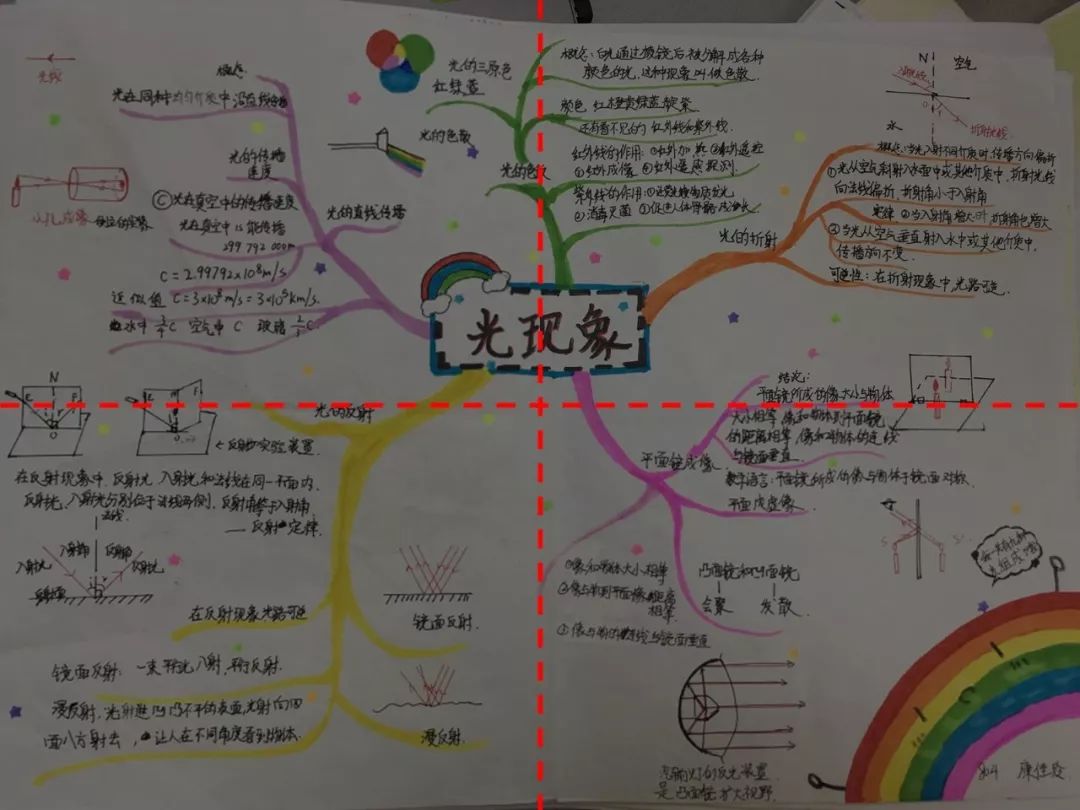 光现象
光线
概念:
光在同种均匀介质中沿直线传播
光的传播
速度
©光在真空中的传播速度
光在真空中1s能传播
299 792 000m
C=2.99792×10⁸m/s
近似值 C=3×10⁸m/s=3×10⁵km/s.
水中 3/4C 空气中 C 玻璃 2/3C
光的直线传播
小孔成像
光的三原色
红绿蓝
光的色散
光的色散
概念:白光通过棱镜后被分解成各种
颜色的光,这种现象叫做色散.
颜色 红橙黄绿蓝靛紫
还有看不见的 红外线和紫外线.
红外线的作用:①红外加热②红外遥控
③红外成像 ④红外遥感探测.
紫外线的作用:
②消毒灭菌
光的折射
N
空气
O
水
折射光线
概念:
①光从空气斜射入水中或其他介质中,折射光线
向法线偏折,折射角小于入射角
定律 ②当入射角增大时 折射角也增大
③当光从空气垂直射入水中或其他介质中,
传播方向不变.
可逆性:在折射现象中,光路可逆.
光的反射
N
←反射实验装置
在反射现象中,反射光 入射光和法线在同一平面内.
反射光、入射光分别位于法线两侧,反射角等于入射角
—— 反射定律.
法线
入射光
入射角
反射角
反射光
在反射现象光路可逆
镜面反射.
镜面反射:一束平行光入射,平行反射.
漫反射,光射进凹凸不平的表面,光射向四
面八方射去,让人在不同角度看到物体.
漫反射.
平面镜成像.
结论:
平面镜所成的像大小与物体
大小相等,像和物体到平面镜
的距离相等,像和物体的连线
与镜面垂直.
数学语言:平面镜所成的像与物体于镜面对称.
平面成虚像.
①像和物体大小相等
相等
③像与物的连线与镜面垂直
凸面镜和凹面镜
会聚 发散
S
S'
汽车灯的反光装置
是凸面镜 扩大视野.
804